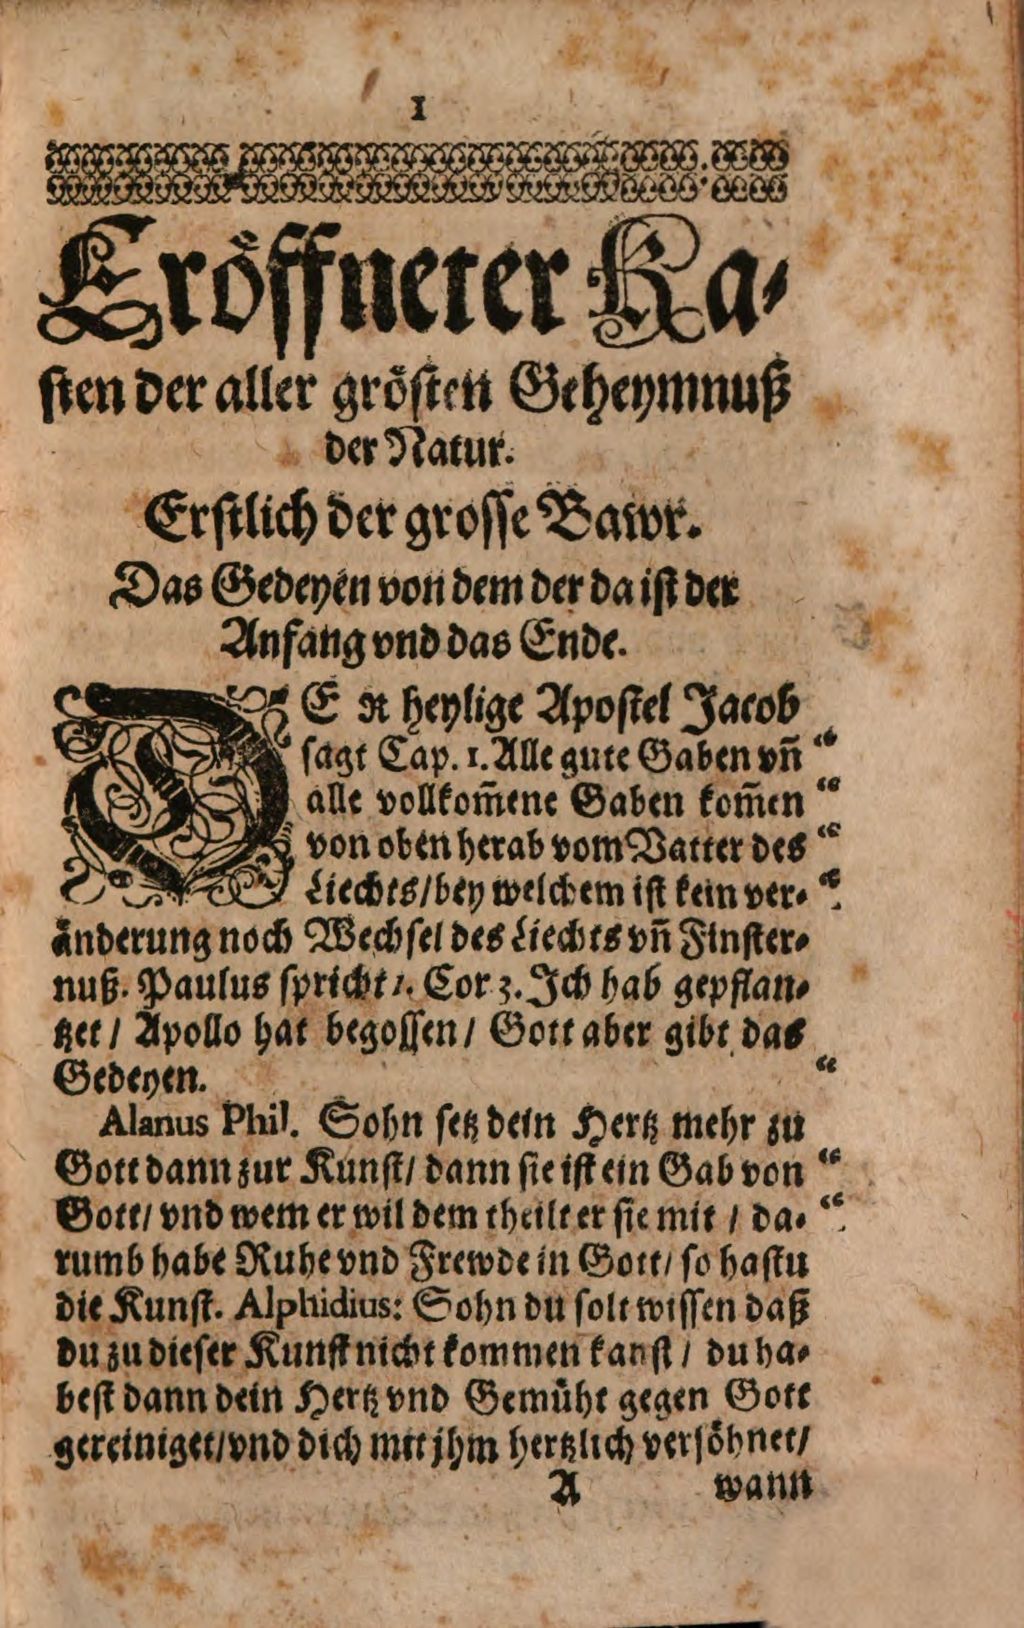 1
Eröffneter Ka⸗
sten der aller grösten Geheymnuß
der Natur.
Erstlich der grosse Bawr.
Das Gedeyen von dem der da ist der
Anfang vnd das Ende.
DER heylige Apostel Jacob
sagt Cap. 1. Alle gute Gaben vn̄ “
alle vollkom̄ene Gaben kom̄en “
von oben herab vom Vatter des “
Liechts/ bey welchem ist kein ver⸗ “
änderung noch Wechsel des Liechts vn̄ Finster⸗
nuß. Paulus spricht 1. Cor 3. Ich hab gepflan⸗
tzet / Apollo hat begossen / Gott aber gibt das
Gedeyen. “
Alanus Phil. Sohn setz dein Hertz mehr zu
Gott dann zur Kunst/ dann sie ist ein Gab von “
Gott/ vnd wem er wil dem theilt er sie mit / da⸗ “
rumb habe Ruhe vnd Frewde in Gott/ so hastu
die Kunst. Alphidius: Sohn du solt wissen daß
du zu dieser Kunst nicht kommen kanst / du ha⸗
best dann dein Hertz vnd Gemüht gegen Gott
gereiniget/ vnd dich mit jhm hertzlich versöhnet/
A wann